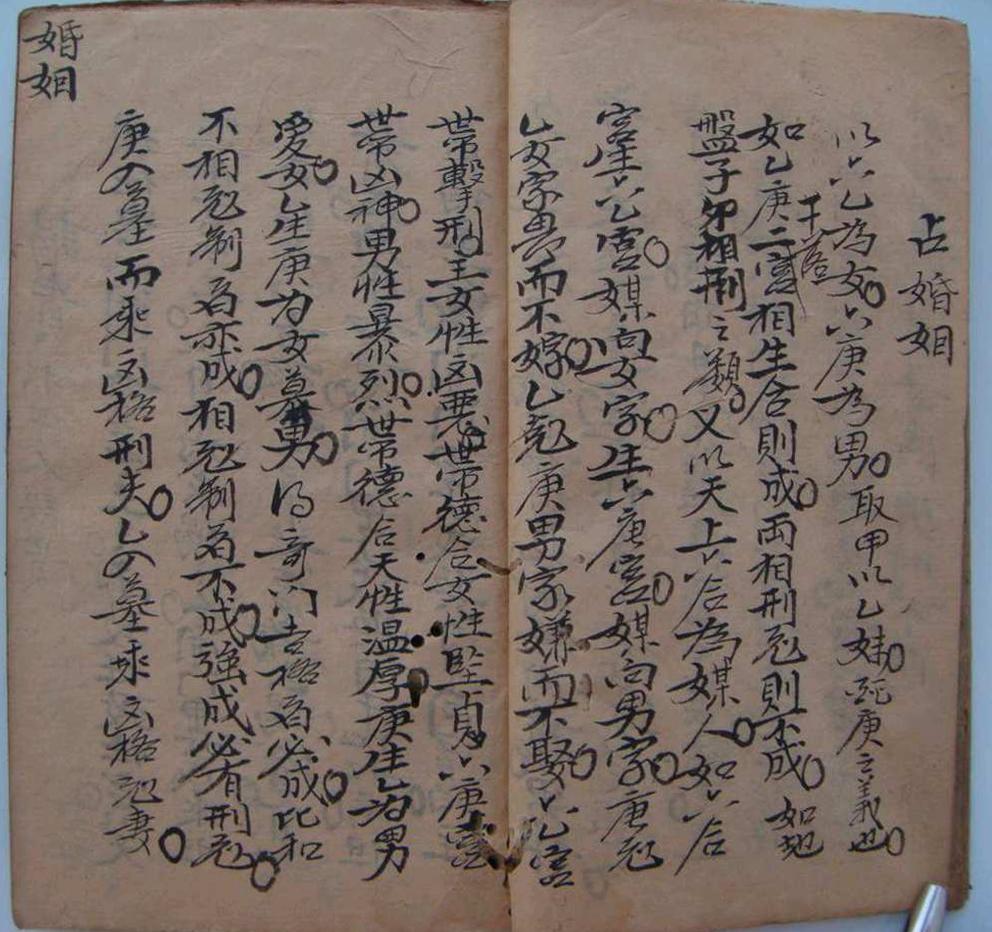 占婚姻
以六乙為女六庚為男取甲以乙妹配庚之義也
如乙庚二宮干落相生合則成両相刑尅則不成如地
盤子卯相刑之類又以天上六合為媒人如六合
宮生六乙宮媒向女家生六庚宮媒向男家庚尅
乙女家畏而不嫁乙尅庚男家嫌而不娶六乙宮
帯擊刑主女性凶悪帯德合女性堅貞六庚宮
帯凶神男性暴烈帯德合天性温厚庚生乙为男
愛女乙生庚为女慕男得奇门吉格者必成比和
不相尅制者亦成相尅制者不成強成必有刑尅
庚入墓而乘凶格刑夫乙入墓乘凶格尅妻
婚姻